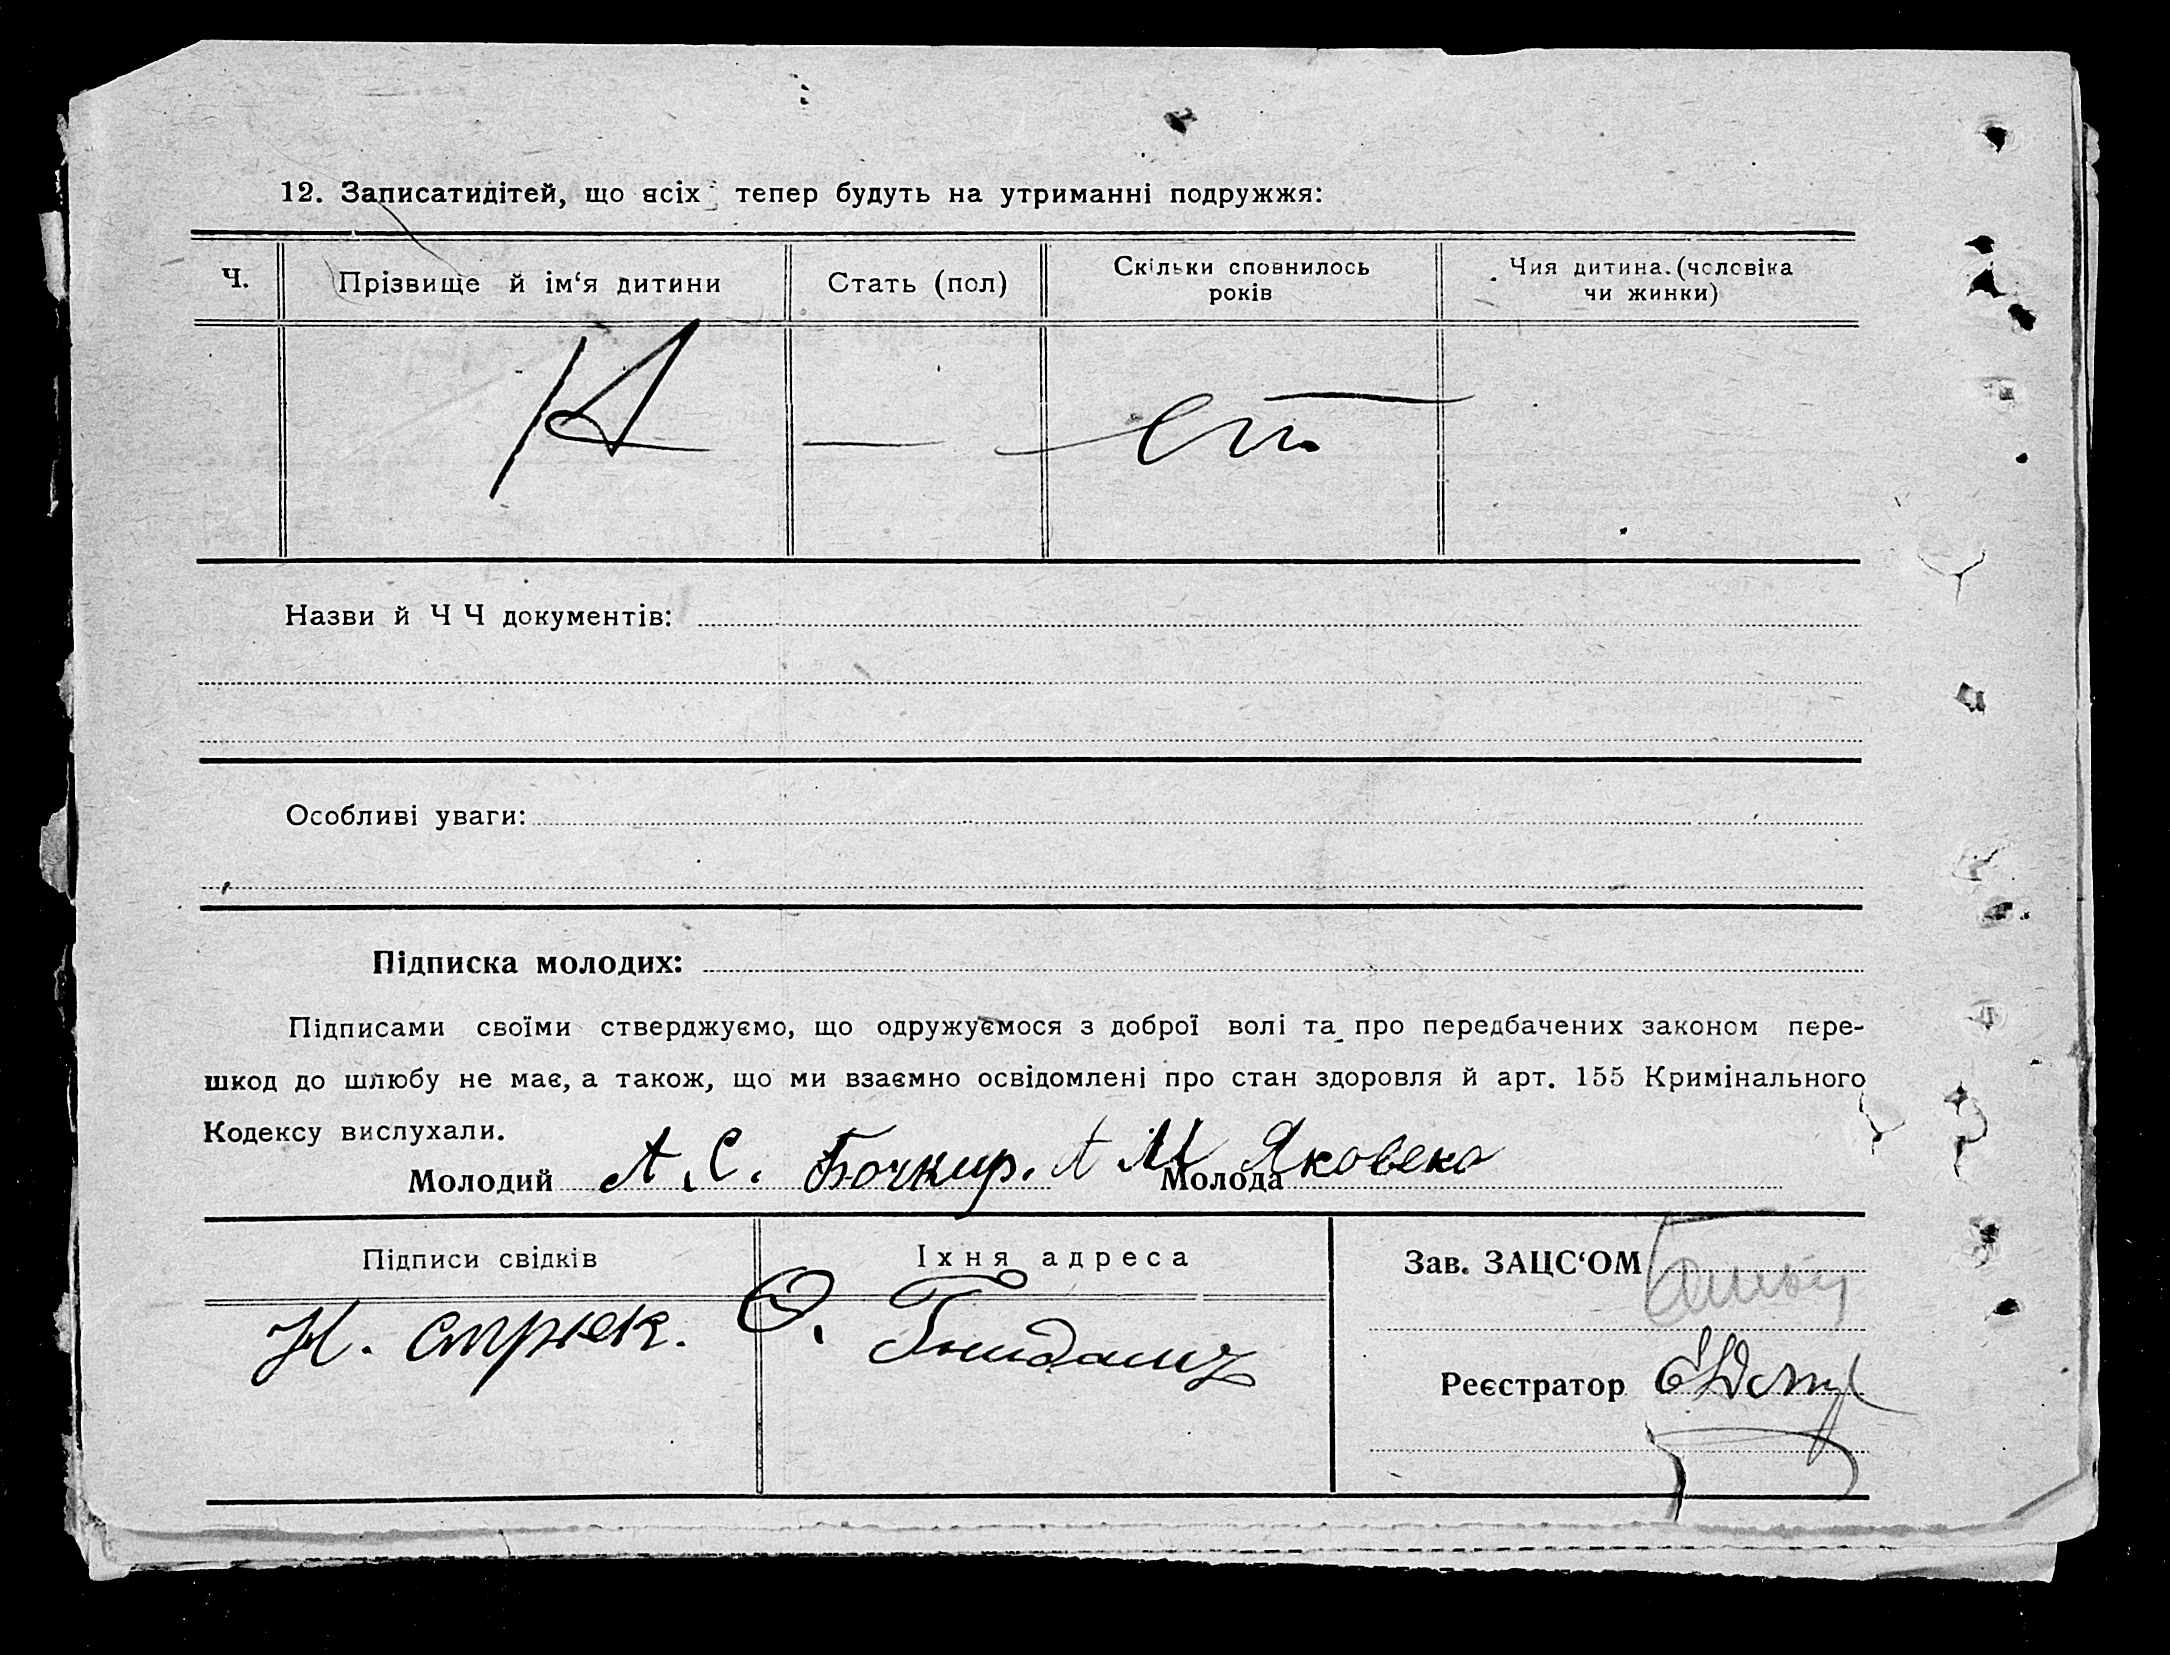 12. Записатидітей, що всіх тепер будуть на утриманні подружжя:
Ч.
Прізвище й ім‘я дитини
Стать (пол)
Скільки сповнилось
років
Чия дитина.(чоловіка
чи жинки)
Назви й Ч Ч документів:
Особливі уваги:
Підписка молодих:
Підписами своїми стверджуємо, що одружуємося з доброї волі та про передбачених законом пере-
шкод до шлюбу не має, а також, що ми взаємно освідомлені про стан здоровля й арт. 155 Кримінального
Кодексу вислухали.
Молодий А. С. Бочкир. А М Молода Яковека
Підписи свідків
Їхня адреса
Зав. ЗАЦС‘ОМ
Н. О.
Реєстратор